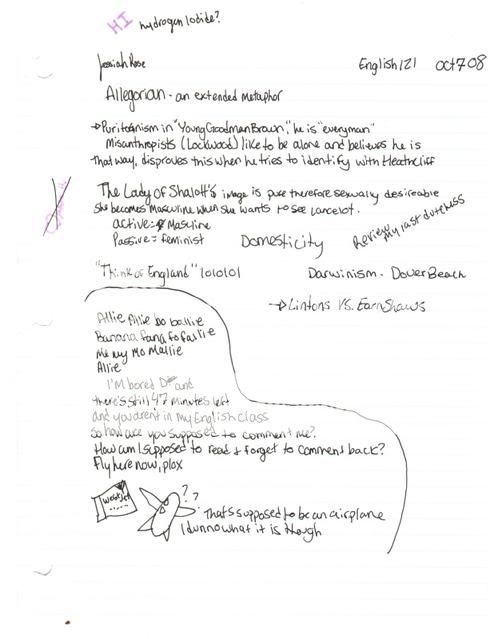 HI hydrogen Iodide?
Jessiah Rose English 121 Oct 7 08
Allegorian - an extended metaphor
→ Puritanism in "Young Goodman Brown," he is "everyman"
Misanthropists (Lockwood) like to be alone and believes he is
that way, disproves this when he tries to identify with Heathcliff
The Lady of Shalott's image is pure therefore sexually desireable
she becomes Masculine when she wants to see Lancelot.
active = Masculine
Passive = feminist
Domesticity
Review My last dutchess
"Think of England" lolololol
Darwinism - Dover Beach
→ Lintons VS. Earnshaws
Allie Allie bo ballie
Banana fana fo fallie
Me my Mo Mallie
Allie
I'm bored and
there's still 47 minutes left
and you arent in my English class
so how are you supposed to comment me?
How am I supposed to read & forget to comment back?
Fly here now, plox
WestJet
? ?
That's supposed to be an airplane
I dunno what it is though